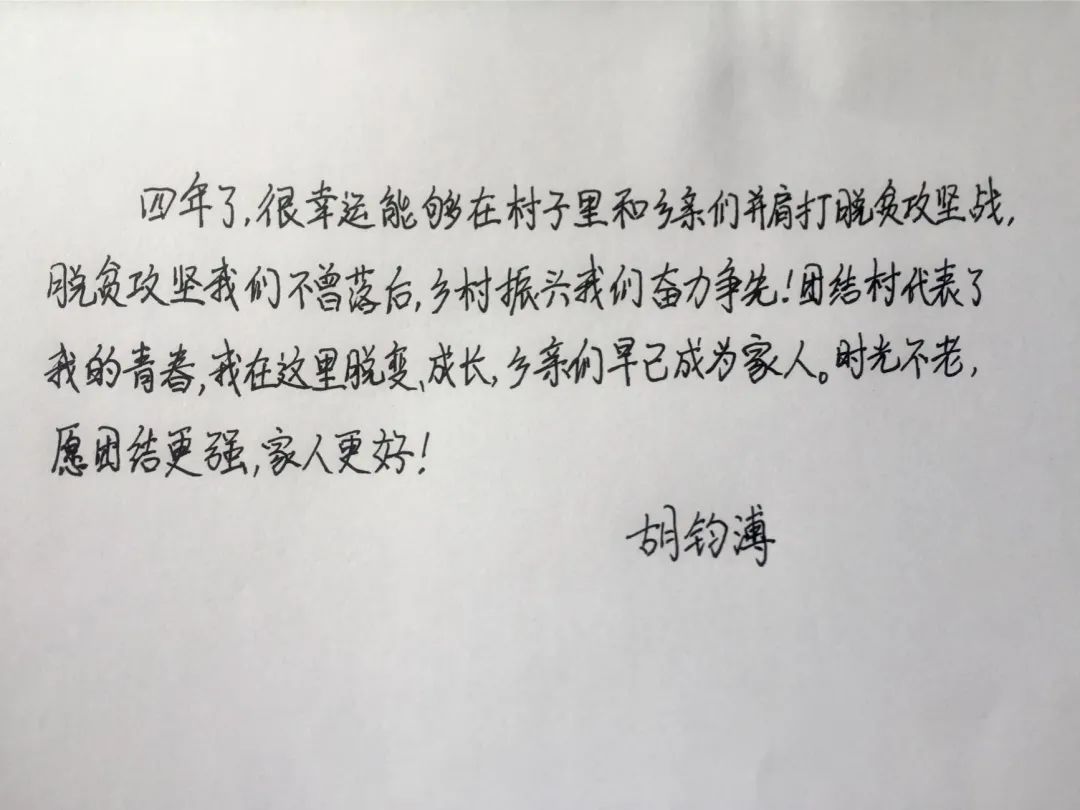 四年了,很幸运能够在村子里和乡亲们并肩打脱贫攻坚战,
脱贫攻坚我们不曾落后,乡村振兴我们奋力争先!团结村代表了
我的青春,我在这里脱变、成长,乡亲们早已成为家人。时光不老,
愿团结更强,家人更好!
胡钧溥